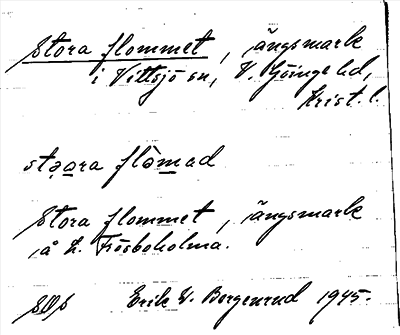 Stora flommet, ängsmark
i Vittsjö sn, V. Göinge hd,
Krist. l.
stạọra flò̀mad
Stora flommet, ängsmark
å L. Frösboholma.
Erik V. Borgenrud 1945.